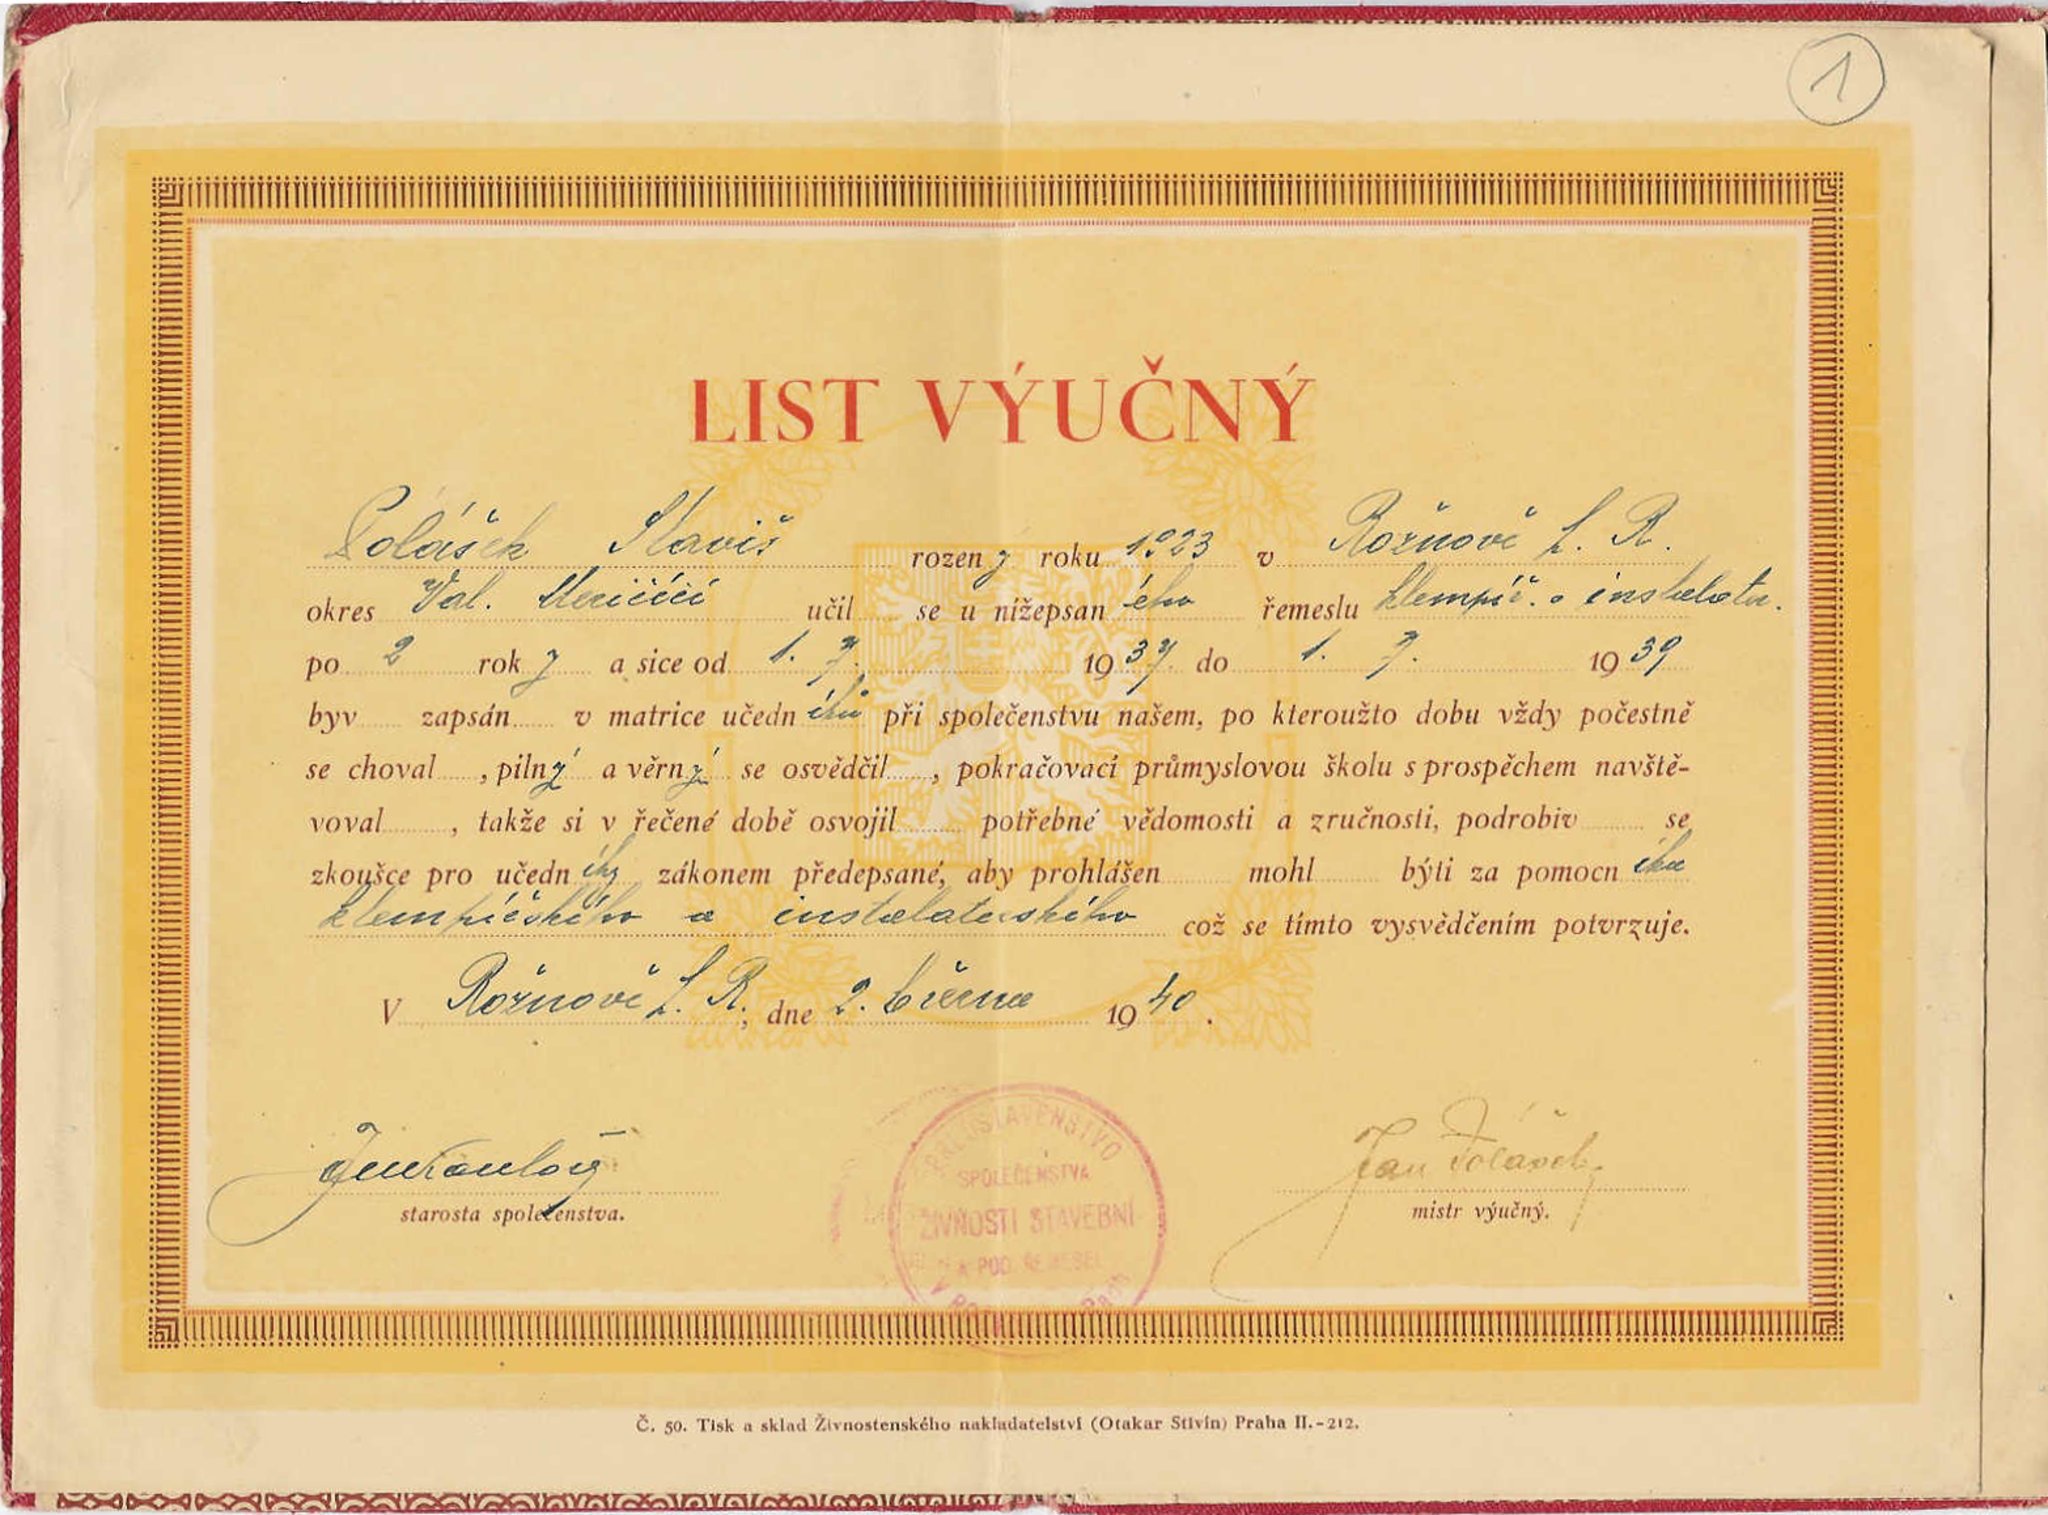 1
LIST VÝUČNÝ
Poláček Slaviš rozený roku 1923 v Rožnově p. R.
okres Val. Meziříčí učil se u nížepsaného řemeslu klempíř. a instalatér.
po 2 roky a sice od 1. 7. 1937. do 1. 7. 1939
byv zapsán v matrice učedníků při společenstvu našem, po kteroužto dobu vždy počestně
se choval, pilný a věrný se osvědčil, pokračovací průmyslovou školu s prospěchem navště-
voval, takže si v řečené době osvojil potřebné vědomosti a zručnosti, podrobiv se
zkoušce pro učedníky zákonem předepsané, aby prohlášen mohl býti za pomocníka
klempířského a instalaterského což se tímto vysvědčením potvrzuje.
V Rožnově p. R., dne 2. března 1940.
starosta společenstva.
Jan Poláček
mistr výučný.
SPOLEČENSTVA
ŽIVNOSTÍ STAVEBNÍ
A POD. ŘEMESEL
Č. 50. Tisk a sklad Živnostenského nakladatelství (Otakar Stivín) Praha II.-212.